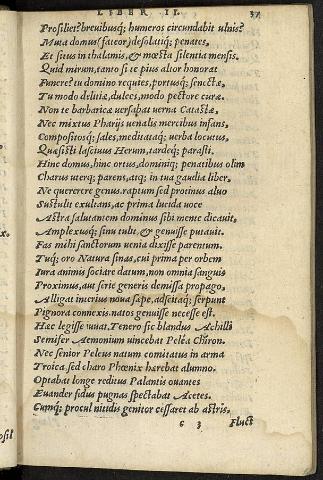 LIBER II. 37
Prosiliet? breuibusq; humeros circundabit ulnis?
Muta domus (fateor) desolatiq; penates,
Et situs in thalamis, & mœsta silentia mensis.
Quid mirum, tanto si te pius altor honorat
Funere? tu domino requies, portusq; senectæ,
Tu modo delitiæ, dulces, modo pectore curæ.
Non te barbaricæ uersabat uerna Catastæ,
Nec mixtus Pharijs uenalis mercibus infans,
Compositosq; sales, meditataq; uerba locutus,
Quæsisti lasciuus Herum, tardeq; parasti.
Hinc domus, hinc ortus, dominiq; penatibus olim
Charus uterq; parens, atq; in tua gaudia liber,
Ne quererere genus. raptum sed protinus aluo
Sustulit exultans, ac prima lucida uoce
Astra salutantem dominus sibi mente dicauit,
Amplexusq; sinu tulit, & genuisse putauit.
Fas mihi sanctorum uenia dixisse parentum.
Tuq; oro Natura sinas, cui prima per orbem
Iura animis sociare datum, non omnia sanguis
Proximus, aut serie generis demissa propago,
Alligat interius noua sæpe, adscitaq; serpunt
Pignora connexis. natos genuisse necesse est.
Hac legisse iuuat. Tenero sic blandus Achilli
Semifer Aemonium uincebat Pelea Chiron.
Nec senior Peleus natum comitatus in arma
Troica, sed charo Phœnix hærebat alumno.
Optabat longe reditus Palantis ouantes
Euander fidus pugnas spectabat Acetes.
Cumq; procul nitidis genitor cessaret ab astris,
c 3 Fluct